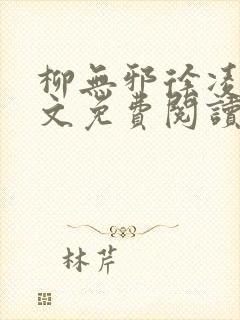 柳無邪徐凌
文免費閱讀
林芹